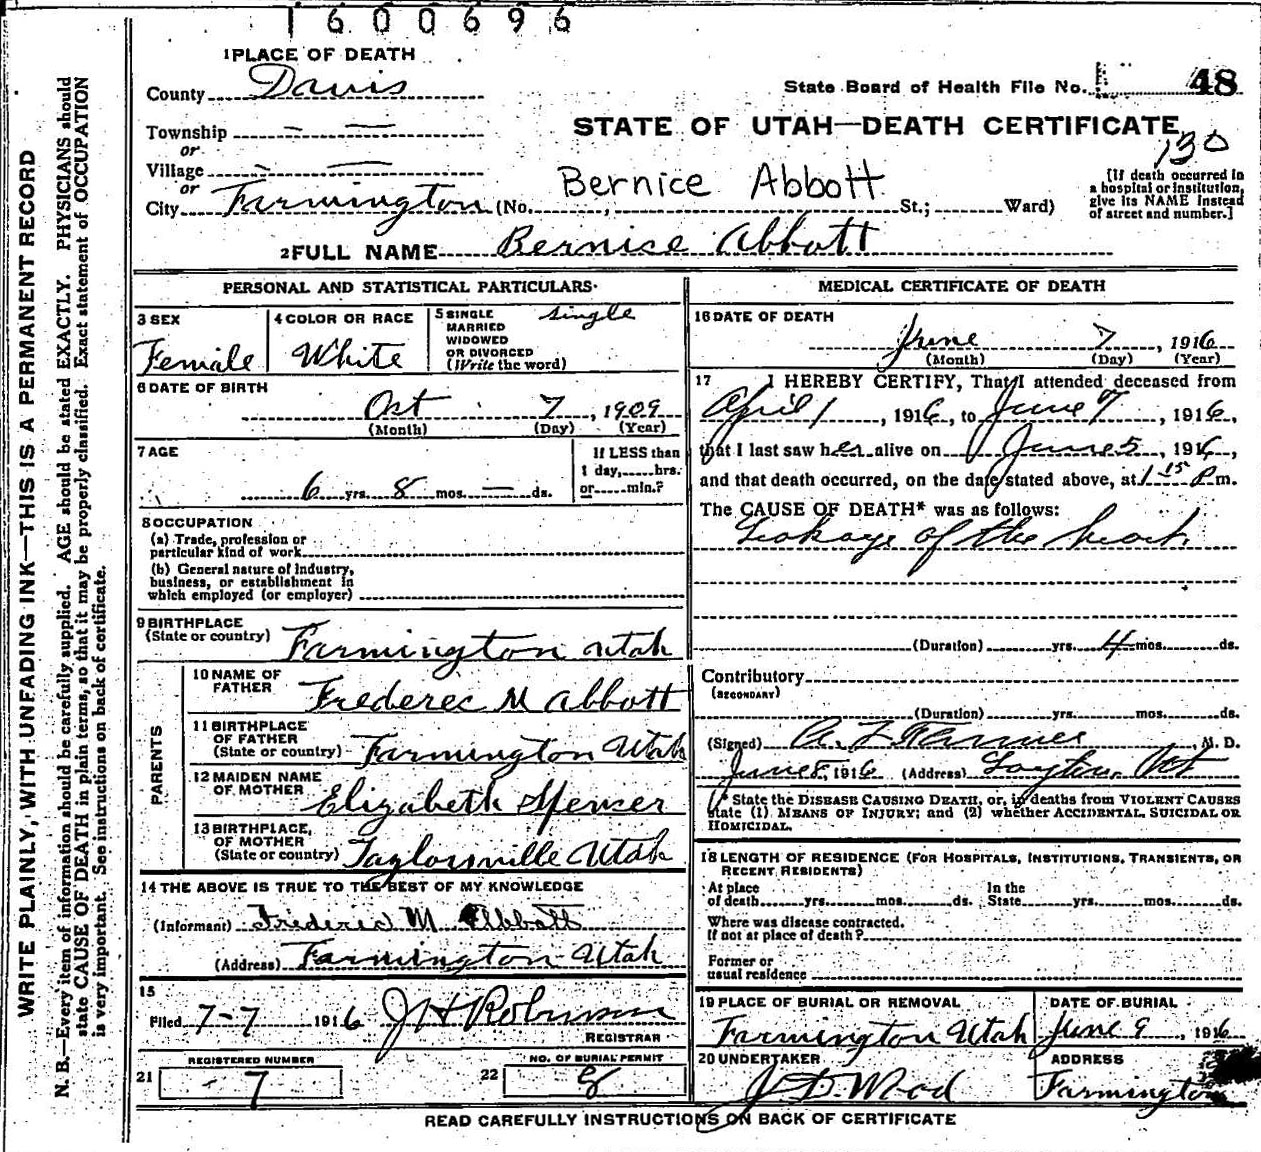 1600696
1 PLACE OF DEATH
County Davis
State Board of Health File No. 48
Township — —
or
Village — —
or
City Farmington (No. , St.; Ward)
STATE OF UTAH—DEATH CERTIFICATE
130
[If death occurred in
a hospital or institution,
give its NAME instead
of street and number.]
Bernice Abbott
2 FULL NAME Bernice Abbott
PERSONAL AND STATISTICAL PARTICULARS
3 SEX
Female
4 COLOR OR RACE
White
5 SINGLE
MARRIED
WIDOWED
OR DIVORCED
(Write the word)
Single
6 DATE OF BIRTH
Oct 7, 1909
(Month) (Day) (Year)
7 AGE
6 yrs. 8 mos. — ds.
If LESS than
1 day, hrs.
or min.?
8 OCCUPATION
(a) Trade, profession or
particular kind of work
(b) General nature of Industry,
business, or establishment in
which employed (or employer)
9 BIRTHPLACE
(State or country) Farmington Utah
PARENTS
10 NAME OF
FATHER Frederec M Abbott
11 BIRTHPLACE
OF FATHER
(State or country) Farmington Utah
12 MAIDEN NAME
OF MOTHER Elizabeth Spencer
13 BIRTHPLACE,
OF MOTHER
(State or country) Taylorsville Utah
14 THE ABOVE IS TRUE TO THE BEST OF MY KNOWLEDGE
(Informant) Frederic M Abbott
(Address) Farmington Utah
15
Filed 7-7 1916 J H Robinson
REGISTRAR
REGISTERED NUMBER
21 7
NO. OF BURIAL PERMIT
22 8
MEDICAL CERTIFICATE OF DEATH
16 DATE OF DEATH
June 7, 1916
(Month) (Day) (Year)
17 I HEREBY CERTIFY, That I attended deceased from
April 1, 1916, to June 7, 1916,
that I last saw her alive on June 5, 1916,
and that death occurred, on the date stated above, at 1 15 P m.
The CAUSE OF DEATH* was as follows:
Leakage of the heart
(Duration) yrs. 4 mos. ds.
Contributory
(SECONDARY)
(Duration) yrs. mos. ds.
(Signed) , M. D.
June 8, 1916 (Address) Layton,
* State the DISEASE CAUSING DEATH, or, in deaths from VIOLENT CAUSES
state (1) MEANS OF INJURY; and (2) whether ACCIDENTAL, SUICIDAL OR
HOMICIDAL.
18 LENGTH OF RESIDENCE (FOR HOSPITALS, INSTITUTIONS, TRANSIENTS, OR
RECENT RESIDENTS)
At place
of death yrs. mos. ds.
In the
State yrs. mos. ds.
Where was disease contracted.
If not at place of death?
Former or
usual residence
19 PLACE OF BURIAL OR REMOVAL
Farmington Utah
DATE OF BURIAL
June 9, 1916
20 UNDERTAKER
J D. Wood
ADDRESS
Farmington
READ CAREFULLY INSTRUCTIONS ON BACK OF CERTIFICATE
WRITE PLAINLY, WITH UNFADING INK—THIS IS A PERMANENT RECORD
N. B.—Every item of information should be carefully supplied. AGE should be stated EXACTLY. PHYSICIANS should
state CAUSE OF DEATH in plain terms, so that it may be properly classified. Exact statement of OCCUPATION
is very important. See instructions on back of certificate.